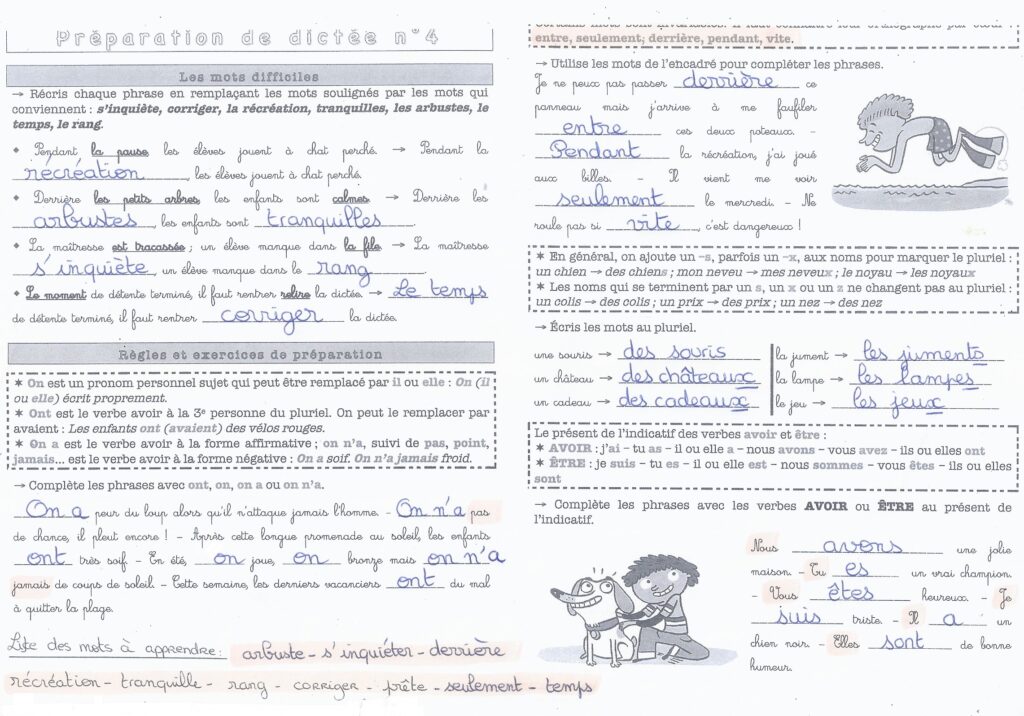 Préparation de dictée n°4
Les mots difficiles
→ Récris chaque phrase en remplaçant les mots soulignés par les mots qui
conviennent : s'inquiète, corriger, la récréation, tranquilles, les arbustes, le
temps, le rang.
• Pendant la pause, les élèves jouent à chat perché. → Pendant la
récréation, les élèves jouent à chat perché.
• Derrière les petits arbres, les enfants sont calmes. → Derrière les
arbustes, les enfants sont tranquilles.
• La maîtresse est tracassée ; un élève manque dans la file. → La maîtresse
s'inquiète, un élève manque dans le rang.
• Le moment de détente terminé, il faut rentrer relire la dictée. → Le temps
de détente terminé, il faut rentrer corriger la dictée.
Règles et exercices de préparation
✶ On est un pronom personnel sujet qui peut être remplacé par il ou elle : On (il
ou elle) écrit proprement.
✶ Ont est le verbe avoir à la 3e personne du pluriel. On peut le remplacer par
avaient : Les enfants ont (avaient) des vélos rouges.
✶ On a est le verbe avoir à la forme affirmative ; on n'a, suivi de pas, point,
jamais... est le verbe avoir à la forme négative : On a soif. On n'a jamais froid.
→ Complète les phrases avec ont, on, on a ou on n'a.
On a peur du loup alors qu'il n'attaque jamais l'homme. – On n'a pas
de chance, il pleut encore ! – Après cette longue promenade au soleil, les enfants
ont très soif. – En été, on joue, on bronze mais on n'a
jamais de coups de soleil. – Cette semaine, les derniers vacanciers ont du mal
à quitter la plage.
Liste des mots à apprendre : arbuste – s'inquiéter – derrière
récréation – tranquille – rang – corriger – prête – seulement – temps
entre, seulement, derrière, pendant, vite.
→ Utilise les mots de l'encadré pour compléter les phrases.
Je ne peux pas passer derrière ce
panneau mais j'arrive à me faufiler
entre ces deux poteaux. –
Pendant la récréation, j'ai joué
aux billes. – Il vient me voir
seulement le mercredi. – Ne
roule pas si vite, c'est dangereux !
✶ En général, on ajoute un -s, parfois un -x, aux noms pour marquer le pluriel :
un chien → des chiens ; mon neveu → mes neveux ; le noyau → les noyaux
✶ Les noms qui se terminent par un s, un x ou un z ne changent pas au pluriel :
un colis → des colis ; un prix → des prix ; un nez → des nez
→ Écris les mots au pluriel.
une souris → des souris la jument → les juments
un château → des châteaux la lampe → les lampes
un cadeau → des cadeaux le jeu → les jeux
Le présent de l'indicatif des verbes avoir et être :
✶ AVOIR : j'ai – tu as – il ou elle a – nous avons – vous avez – ils ou elles ont
✶ ÊTRE : je suis – tu es – il ou elle est – nous sommes – vous êtes – ils ou elles
sont
→ Complète les phrases avec les verbes AVOIR ou ÊTRE au présent de
l'indicatif.
Nous avons une jolie
maison. – Tu es un vrai champion.
– Vous êtes heureux. – Je
suis triste. – Il a un
chien noir. – Elles sont de bonne
humeur.